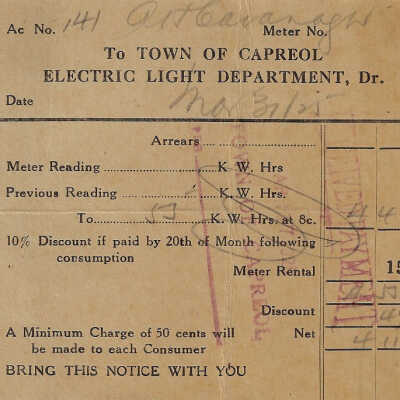 Ac No. 141 Meter No.
To TOWN OF CAPREOL
ELECTRIC LIGHT DEPARTMENT, Dr.
Date May 31/25
Arrears
Meter Reading K. W. Hrs
Previous Reading K. W. Hrs.
To 55 K. W. Hrs. at 8c. 4 4
10% Discount if paid by 20th of Month following
consumption
Meter Rental 15
4 55
Discount 4
A Minimum Charge of 50 cents will Net 4 11
be made to each Consumer
BRING THIS NOTICE WITH YOU
TOWN OF CAPREOL